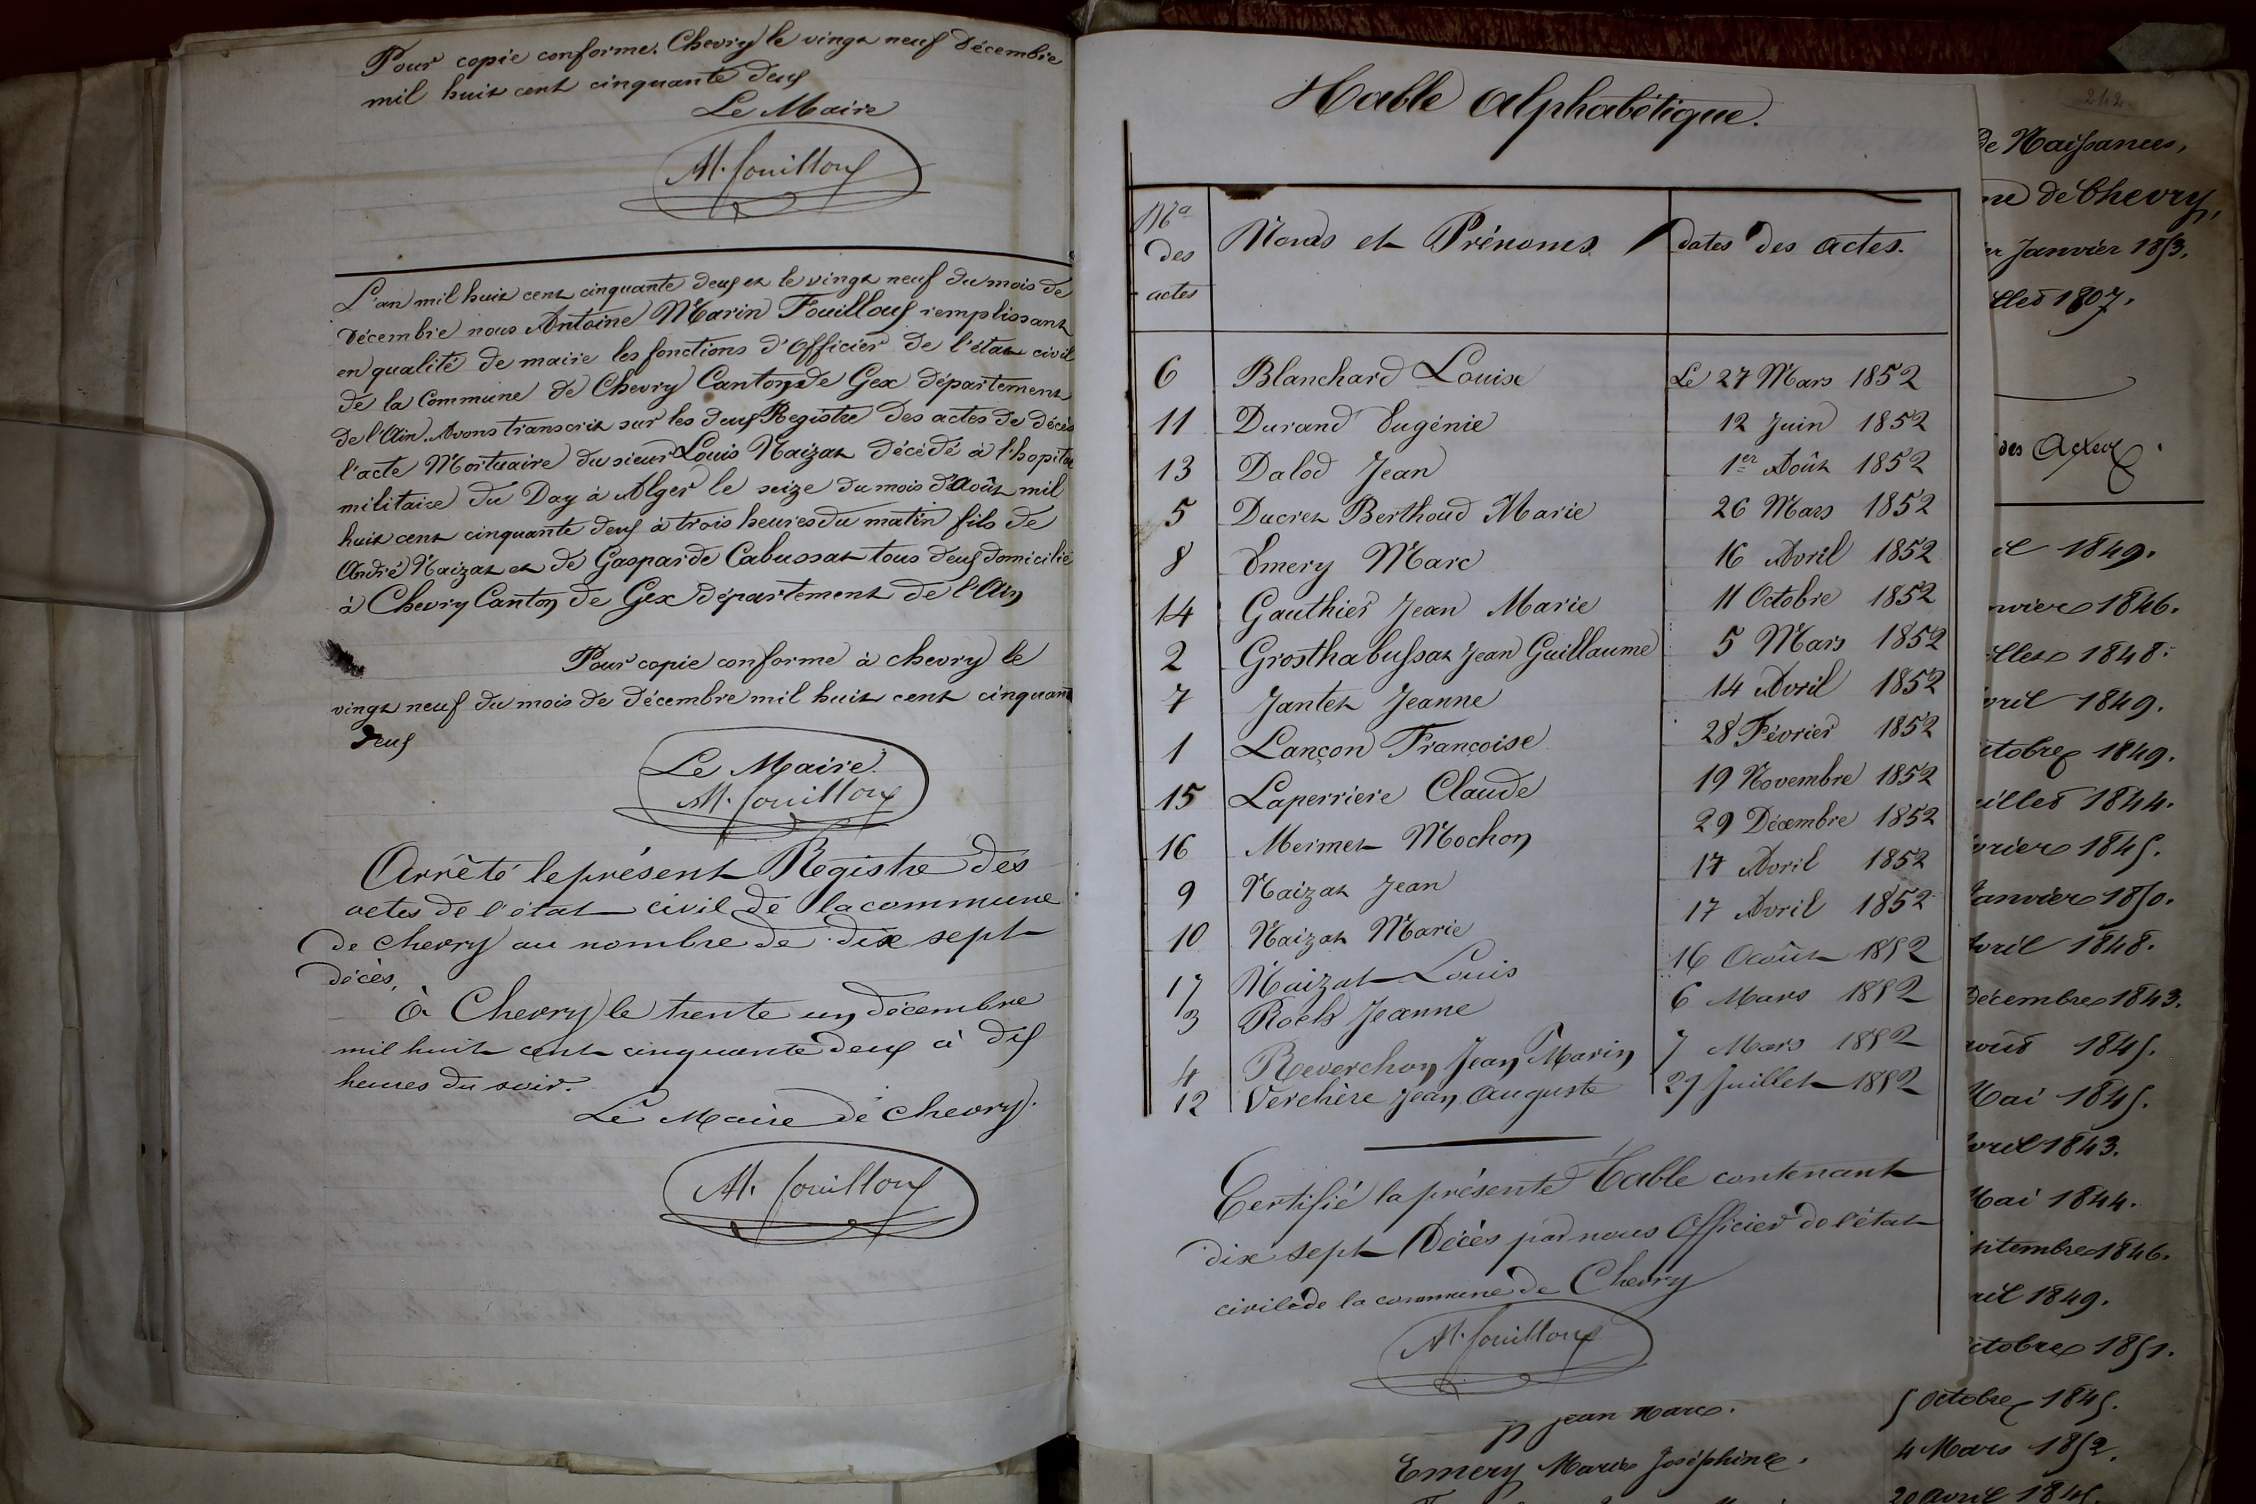 Pour copie conforme. Chevry le vingt neuf Décembre
mil huit cent cinquante deux
Le Maire
M. Fouilloux
L'an mil huit cent cinquante deux et le vingt neuf du mois de
Décembre nous Antoine Marin Fouilloux remplissant
en qualité de maire les fonctions d'Officier de l'état civil
de la Commune de Chevry Canton de Gex département
de l'Ain. Avons transcrit sur les deux Registre des actes de décès
l'acte Mortuaire du sieur Louis Naizat décédé à l'hopital
militaire du Day à Alger le seize du mois d'Août mil
huit cent cinquante deux à trois heures du matin fils de
André Naizat et de Gasparde Cabussat tous deux domicilié
à Chevry Canton de Gex département de l'Ain
Pour copie conforme à chevry le
vingt neuf du mois de décembre mil huit cent cinquante
deux
Le Maire
M. Fouilloux
Arrêté le présent Registre des
actes de l'état civil de la commune
de chevry au nombre de dix sept
décès,
à Chevry le trente un décembre
mil huit cent cinquante deux à dix
heures du soir.
Le Maire de chevry.
M. Fouilloux
Table alphabétique.
Nos des actes | Noms et Prénoms | dates des actes.
6 Blanchard Louise Le 27 Mars 1852
11 Durand Eugénie 12 Juin 1852
13 Dalod Jean 1er Août 1852
5 Ducret Berthoud Marie 26 Mars 1852
8 Emery Marc 16 Avril 1852
14 Gauthier Jean Marie 11 Octobre 1852
2 Grosthabussat Jean Guillaume 5 Mars 1852
7 Jantet Jeanne 14 Avril 1852
1 Lançon Françoise 28 Février 1852
15 Laperriere Claude 19 Novembre 1852
16 Mermet Mochon 29 Décembre 1852
9 Naizat Jean 17 Avril 1852
10 Naizat Marie 17 Avril 1852
17 Naizat Louis 16 Août 1852
3 Roch Jeanne 6 Mars 1852
4 Reverchon Jean Marin 7 Mars 1852
12 Verchère Jean Auguste 29 Juillet 1852
Certifié la présente Table contenant
dix sept Décès par nous Officier de l'état
civil de la commune de Chevry
M. Fouilloux
242
de Naissances,
de Chevry,
Janvier 1853.
1807.
des Actes
1849.
1846.
1848.
1849.
1849.
1844.
1845.
Janvier 1850.
Avril 1848.
Décembre 1843.
1845.
Mai 1845.
Avril 1843.
Mai 1844.
1846.
1849.
1851.
Jean Marc. 5 Octobre 1845.
Emery Marie Joséphine. 4 Mars 1852.
20 Avril 1845